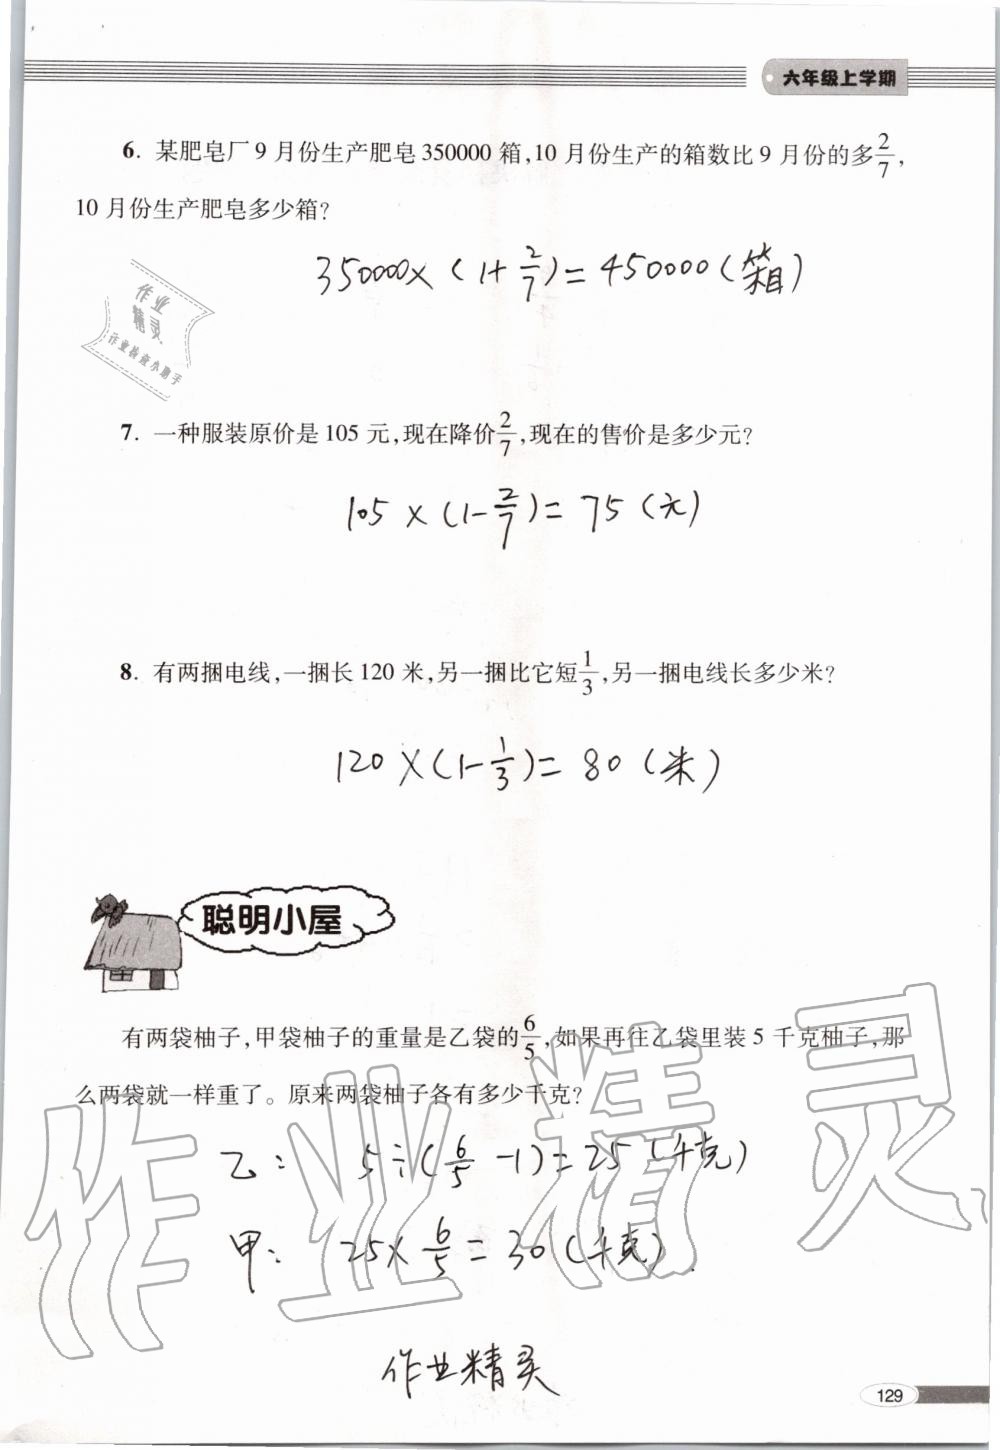 六年级上学期
6. 某肥皂厂9月份生产肥皂350000箱,10月份生产的箱数比9月份的多2/7,
10月份生产肥皂多少箱?
350000×(1+2/7)=450000(箱)
作业
精灵
作业检查小助手
7. 一种服装原价是105元,现在降价2/7,现在的售价是多少元?
105×(1-2/7)=75(元)
8. 有两捆电线,一捆长120米,另一捆比它短1/3,另一捆电线长多少米?
120×(1-1/3)=80(米)
聪明小屋
有两袋柚子,甲袋柚子的重量是乙袋的6/5,如果再往乙袋里装5千克柚子,那
么两袋就一样重了。原来两袋柚子各有多少千克?
乙: 5÷(6/5-1)=25(千克)
甲: 25×6/5=30(千克).
作业精灵
作业精灵
129